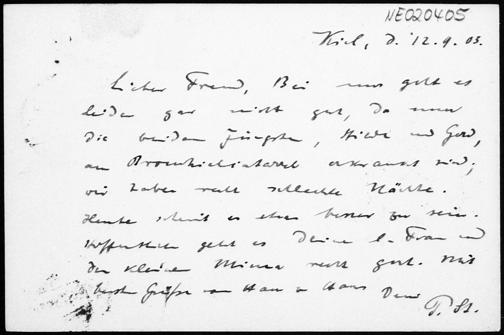 NE020405
Kiel, d. 12.9.03.
Lieber Freund, Bei uns geht es
leider gar nicht gut, da nun
die beiden Jüngsten, Hilde und Gerd,
an Bronchialkatarrh erkrankt sind;
wir haben recht schlechte Nächte.
Heute scheint es etwas besser zu sein.
Hoffentlich geht es Deiner l. Frau und
der kleinen recht gut. Mit
besten Grüßen von Haus zu Haus Dein
P. St.